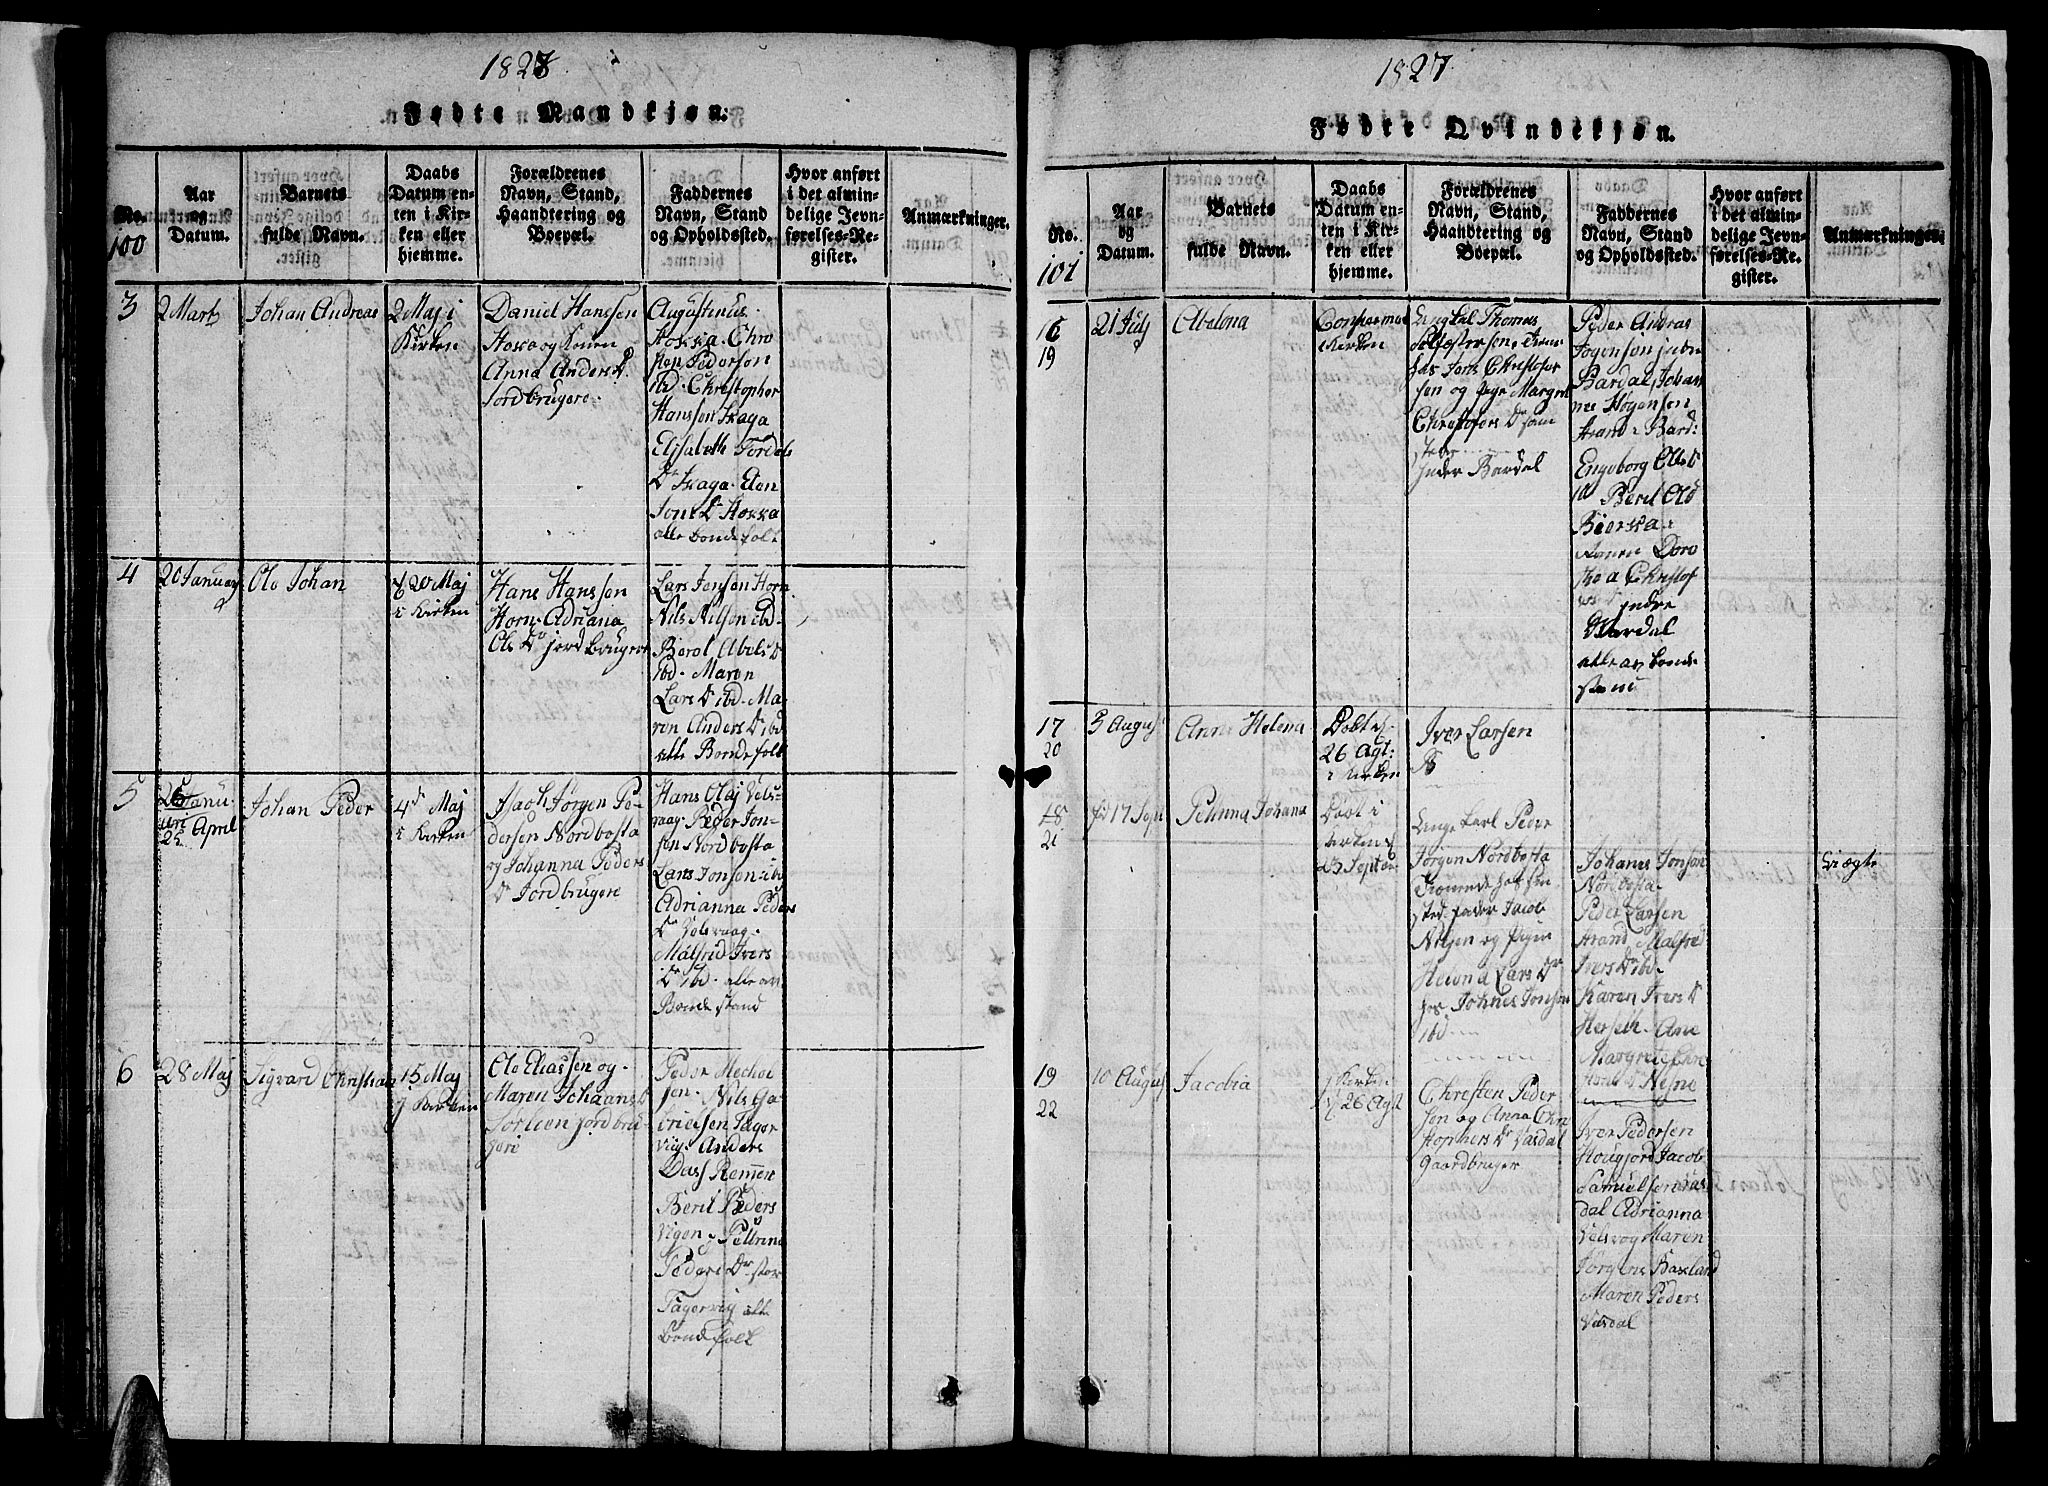 1828
Fødte Mandkjøn.
No.
100
Aar
og
Datum.
Barnets
fulde Navn.
Daabs
Datum en-
ten i Kir-
ken eller
hjemme.
Forældrenes
Navn, Stand,
Haandtering og
Boepæl.
Faddernes
Navn, Stand
og Opholdssted.
Hvor anført
i det almin-
delige Jevn-
førelses-Re-
gister.
Anmærkninger.
3
2 Marts
Johan Andreas
2 Maj i
Kirken
Daniel Hanssen
Hoxa og Konen
Anna Anders D.
Jordbrugere.
Augustinus
Hoxxa. Chro
Pederson
ibd. Christopher
Hansson Fraga
Elisabeth Fordels
Dr Fraga. Elen
Jons Dr Hoxxa
alle bondefolk
4
20 Januar
Ole Johan
20 Maj
i Kirken
Hans Hanssen
Horn. Adriana
Ols Dr jordbruger
Lars Jenson Horn
Nils Nilson ibd.
Berol Abels D
ibd. Maren
Lars Dr ibd. Ma-
ren Anders Dr ibd
alle Bondefolk
5
26 Janu-
ari
25 April
Johan Peder
4d Maj
i Kirken
Jsach Jørgen Pe-
dersen Nordbosta
og Johanna Peders
Dr Jordbrugere
Hans Olaj Vels-
vaag. Peder Jon-
sen Nordbosta
Lars Jonsen ibd
Adrianna Peders
Dr Velsvaag.
Malfrid Ivers
Dr ibd. alle av
Bonde stand
6
28 Maj
Sigvard Christian
15 Maj
i Kirken
Ole Eliassen og
Maren Johans D
Sørleen jordbru-
gere
Peder Mechel
sen. Nils Ga-
brielsen Fager
viig. Anders
Dass Remmen
Beril Peders
Vigen. Pellrina
Peders Dr stor
Fagervig alle
bondefolk
1827
Fødte Qvindekjøn.
No.
101
Aar
og
Datum.
Barnets
fulde Navn.
Daabs
Datum en-
ten i Kir-
ken eller
hjemme.
Forældrenes
Navn, Stand,
Haandtering og
Boepæl.
Faddernes
Navn, Stand
og Opholdssted.
Hvor anført
i det almin-
delige Jevn-
førelses-Re-
gister.
Anmærkninger.
16
19
21 July
Abelona
Kirken
Ungkal Thomas
hos Jens Christofer
sen og Pige Margret
Christofers Dr sam
sted
Inder Bardal
Peder Andras
Jogenson indre
Bardal, Johan
nes Høgensen
Strand i Bard:
Engeborg Ols D
Beril Ols
Bierxa
Konen Doro
thea Christof
Indre
Bardal
alle av bonde
stand
17
20
3 August
Anne Helena
Døbt d.
26 Agt:
i Kirken
Iver Larsen
18
21
17 Sept
Pelinna Johana
Døbt i
Kirken d
23 Septer
Ungekarl Peder
Jørgen Nordbosta
Tienende hos sin
Sted fader Jacob
Nilsen og Pigen
Lars Dr
hos Johnes Jonson
ibd
Johanes Jonson
Nordbosta
Peder Larsen
Strand. Malfred
Ivers Dr ibd.
Karen Ivers D
Herseth. Ane
Margrete Chri
Dr Nesne
Uægte
19
22
10 August
Jacobia
i Kirken
26 Agt
Chresten Peder
sen og Anna Chri
stophers Dr Vasdal
gaardbruger
Iver Pedersen
Hougjord Jacob
Samuelsen Vas
dal Adrianna
Velsvog Maren
Jørgens Baxland
Maren Peders
Vasdal